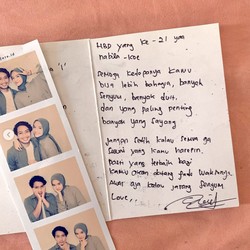 HBD yang ke-21 yaa
nabila-koe
semoga kedepannya kamu
bisa lebih bahagia, banyak
senyum, banyak duit,
dan yang paling penting
banyak yang sayang
jangan sedih kalau semua ga
sesuai yang kamu harapin.
pasti yang terbaik bagi
kamu akan datang pada waktunya.
Awas aja kalau jarang senyum
Love,..